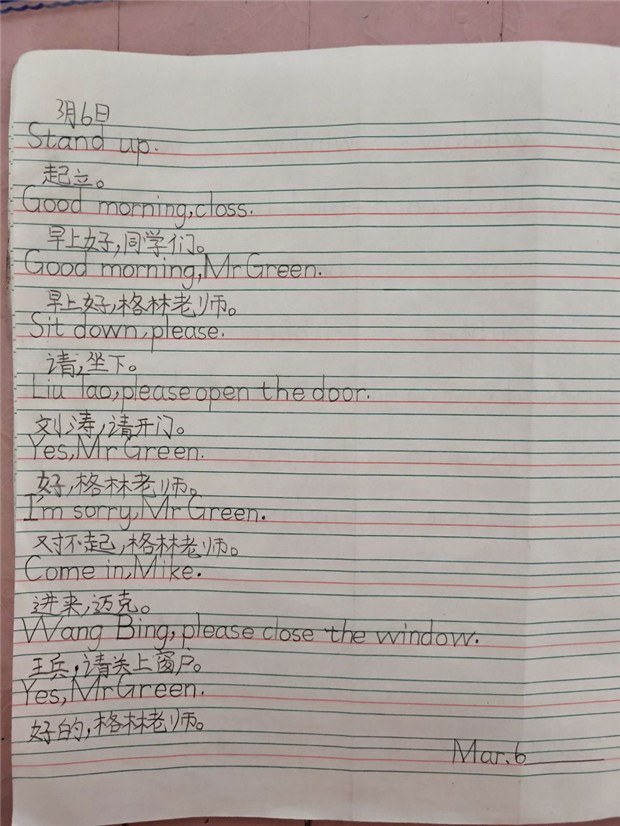 3月6日
Stand up.
起立。
Good morning,closs.
早上好,同学们。
Good morning,Mr Green.
早上好,格林老师。
Sit down,please.
请,坐下。
Liu Tao,please open the door.
刘涛,请开门。
Yes,Mr Green.
好,格林老师。
I'm sorry,Mr Green.
对不起,格林老师。
Come in,Mike.
进来,迈克。
Wang Bing,please close the window.
王兵,请关上窗户。
Yes,Mr Green.
好的,格林老师。
Mar.6